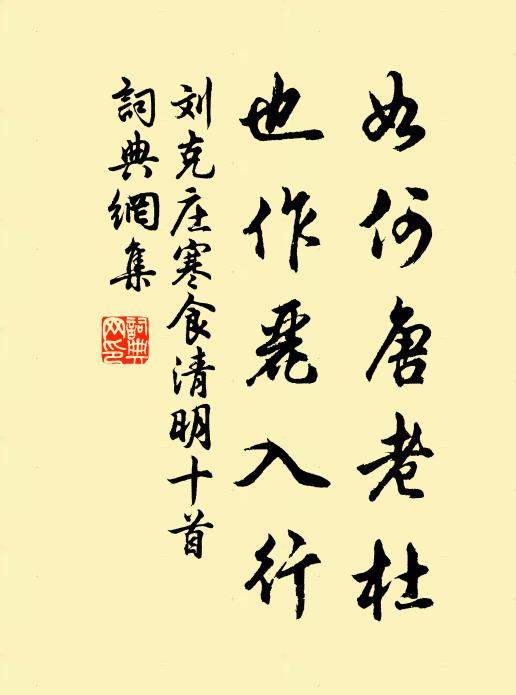 如何唐老杜
也作麗入行
刘克庄寒食清明十首
詞典網集
詞典网印